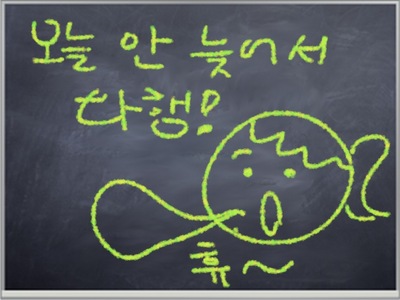 오늘 안 늦어서
다행!
휴~